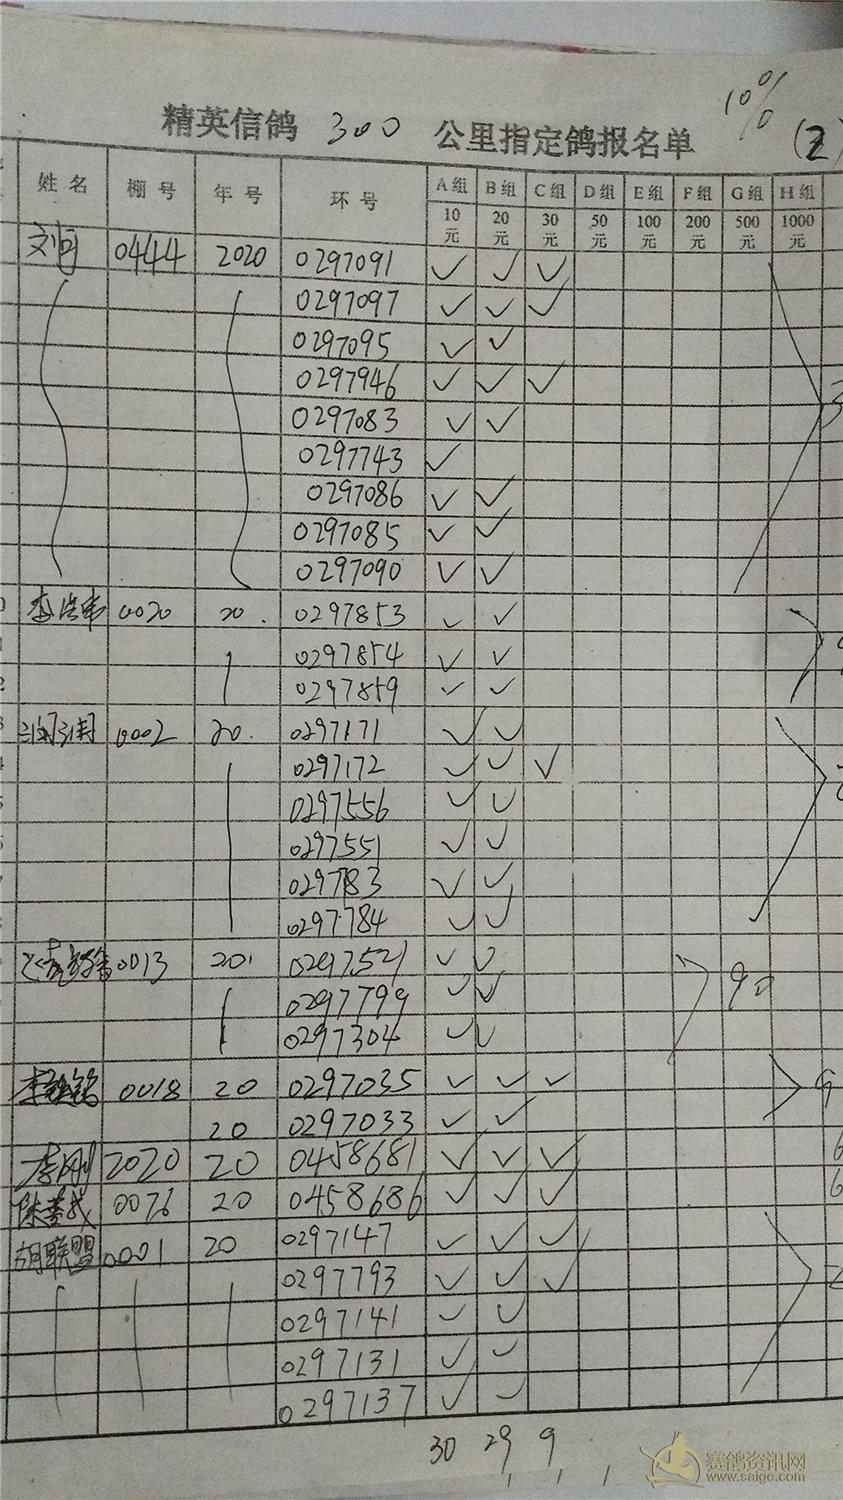 10%
精英信鸽 300 公里指定鸽报名单 (2)
姓名 棚号 年号 环号 A组 B组 C组 D组 E组 F组 G组 H组
10元 20元 30元 50元 100元 200元 500元 1000元
0444 2020 0297091 ✓ ✓ ✓
0297097 ✓ ✓ ✓
0297095 ✓ ✓
0297946 ✓ ✓ ✓
0297083 ✓ ✓
0297743 ✓
0297086 ✓ ✓
0297085 ✓ ✓
0297090 ✓ ✓
0020 20. 0297853 ✓ ✓
0297854 ✓ ✓
0297859 ✓ ✓
0002 20. 0297171 ✓ ✓
0297172 ✓ ✓ ✓
0297556 ✓ ✓
0297551 ✓ ✓
029783 ✓ ✓
0297784 ✓ ✓
0013 20 0297521 ✓ ✓
0297799 ✓ ✓ 90
0297304 ✓ ✓
0018 20 0297035 ✓ ✓ ✓
20 0297033 ✓ ✓
李刚 2020 20 0458681 ✓ ✓ ✓
0076 20 0458686 ✓ ✓ ✓
胡联盟 0001 20 0297147 ✓ ✓ ✓
0297793 ✓ ✓ ✓
0297141 ✓ ✓
0297131 ✓ ✓
0297137 ✓ ✓
30 29 9
赛鸽资讯网
www.saige.com